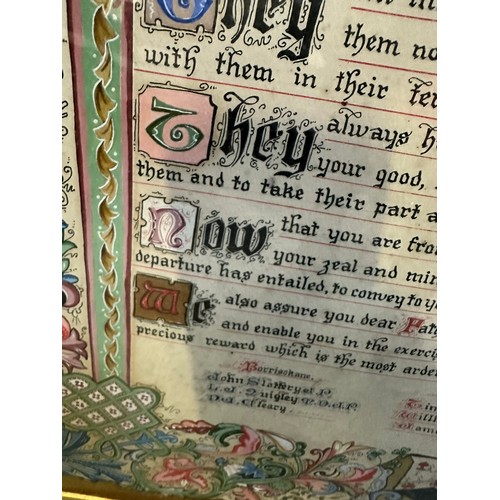 They
them no
with them in their te
They always h
your good,
them and to take their part a
Now that you are fro
your zeal and min
departure has entailed, to convey to y
We also assure you dear Fat
and enable you in the exerci
precious reward which is the most arden
Borrisokane
John Slattery J.P.
Quigley
Cleary